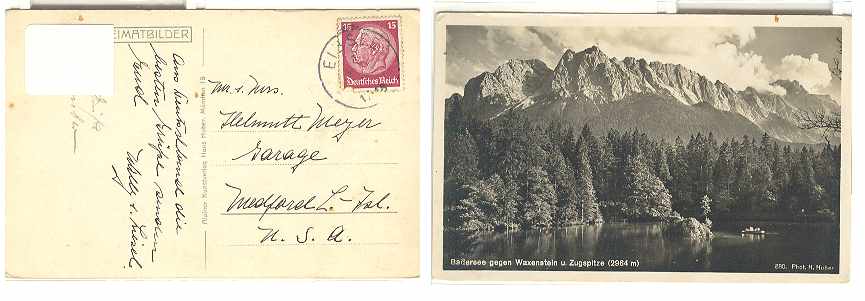 EIMATBILDER
Aus Deutschland die
besten Grüße senden
Alpiner Kunstverlag Hans Huber, München 19
15 15
Deutsches Reich
Mr. u. Mrs.
Helmutt Meyer
Garage
Medford L.-Isl.
U.S.A.
Badersee gegen Waxenstein u. Zugspitze (2964 m)
Phot. H. Huber